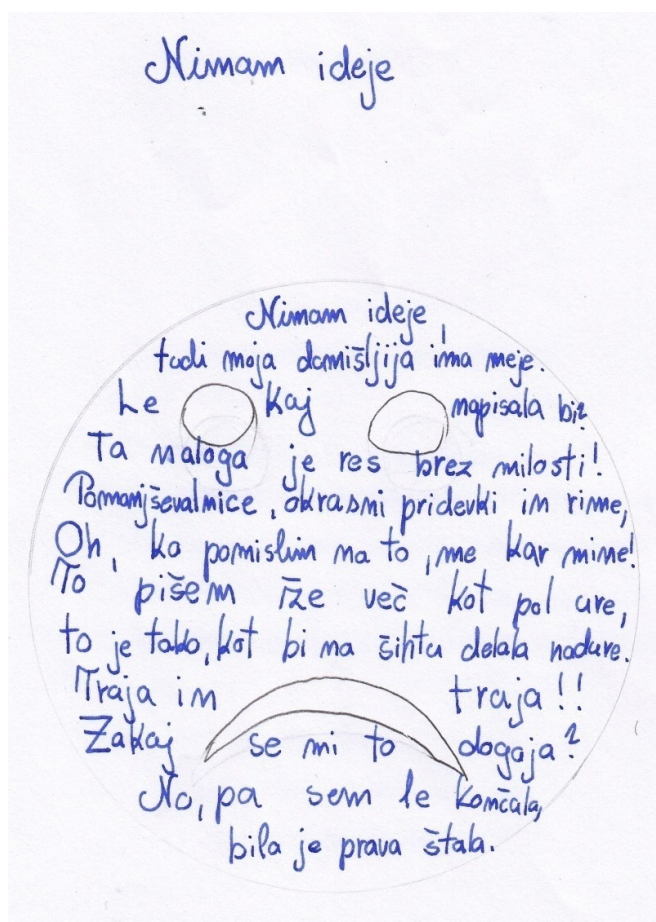 Nimam ideje
Nimam ideje,
tudi moja domišljija ima meje.
Le kaj napisala bi?
Ta naloga je res brez milosti!
Pomanjševalnice, okrasni pridevki in rime,
Oh, ko pomislim na to, me kar mine!
To pišem že več kot pol ure,
to je tako, kot bi na šihtu delala nadure.
Traja in traja!!
Zakaj se mi to dogaja?
No, pa sem le končala,
bila je prava štala.